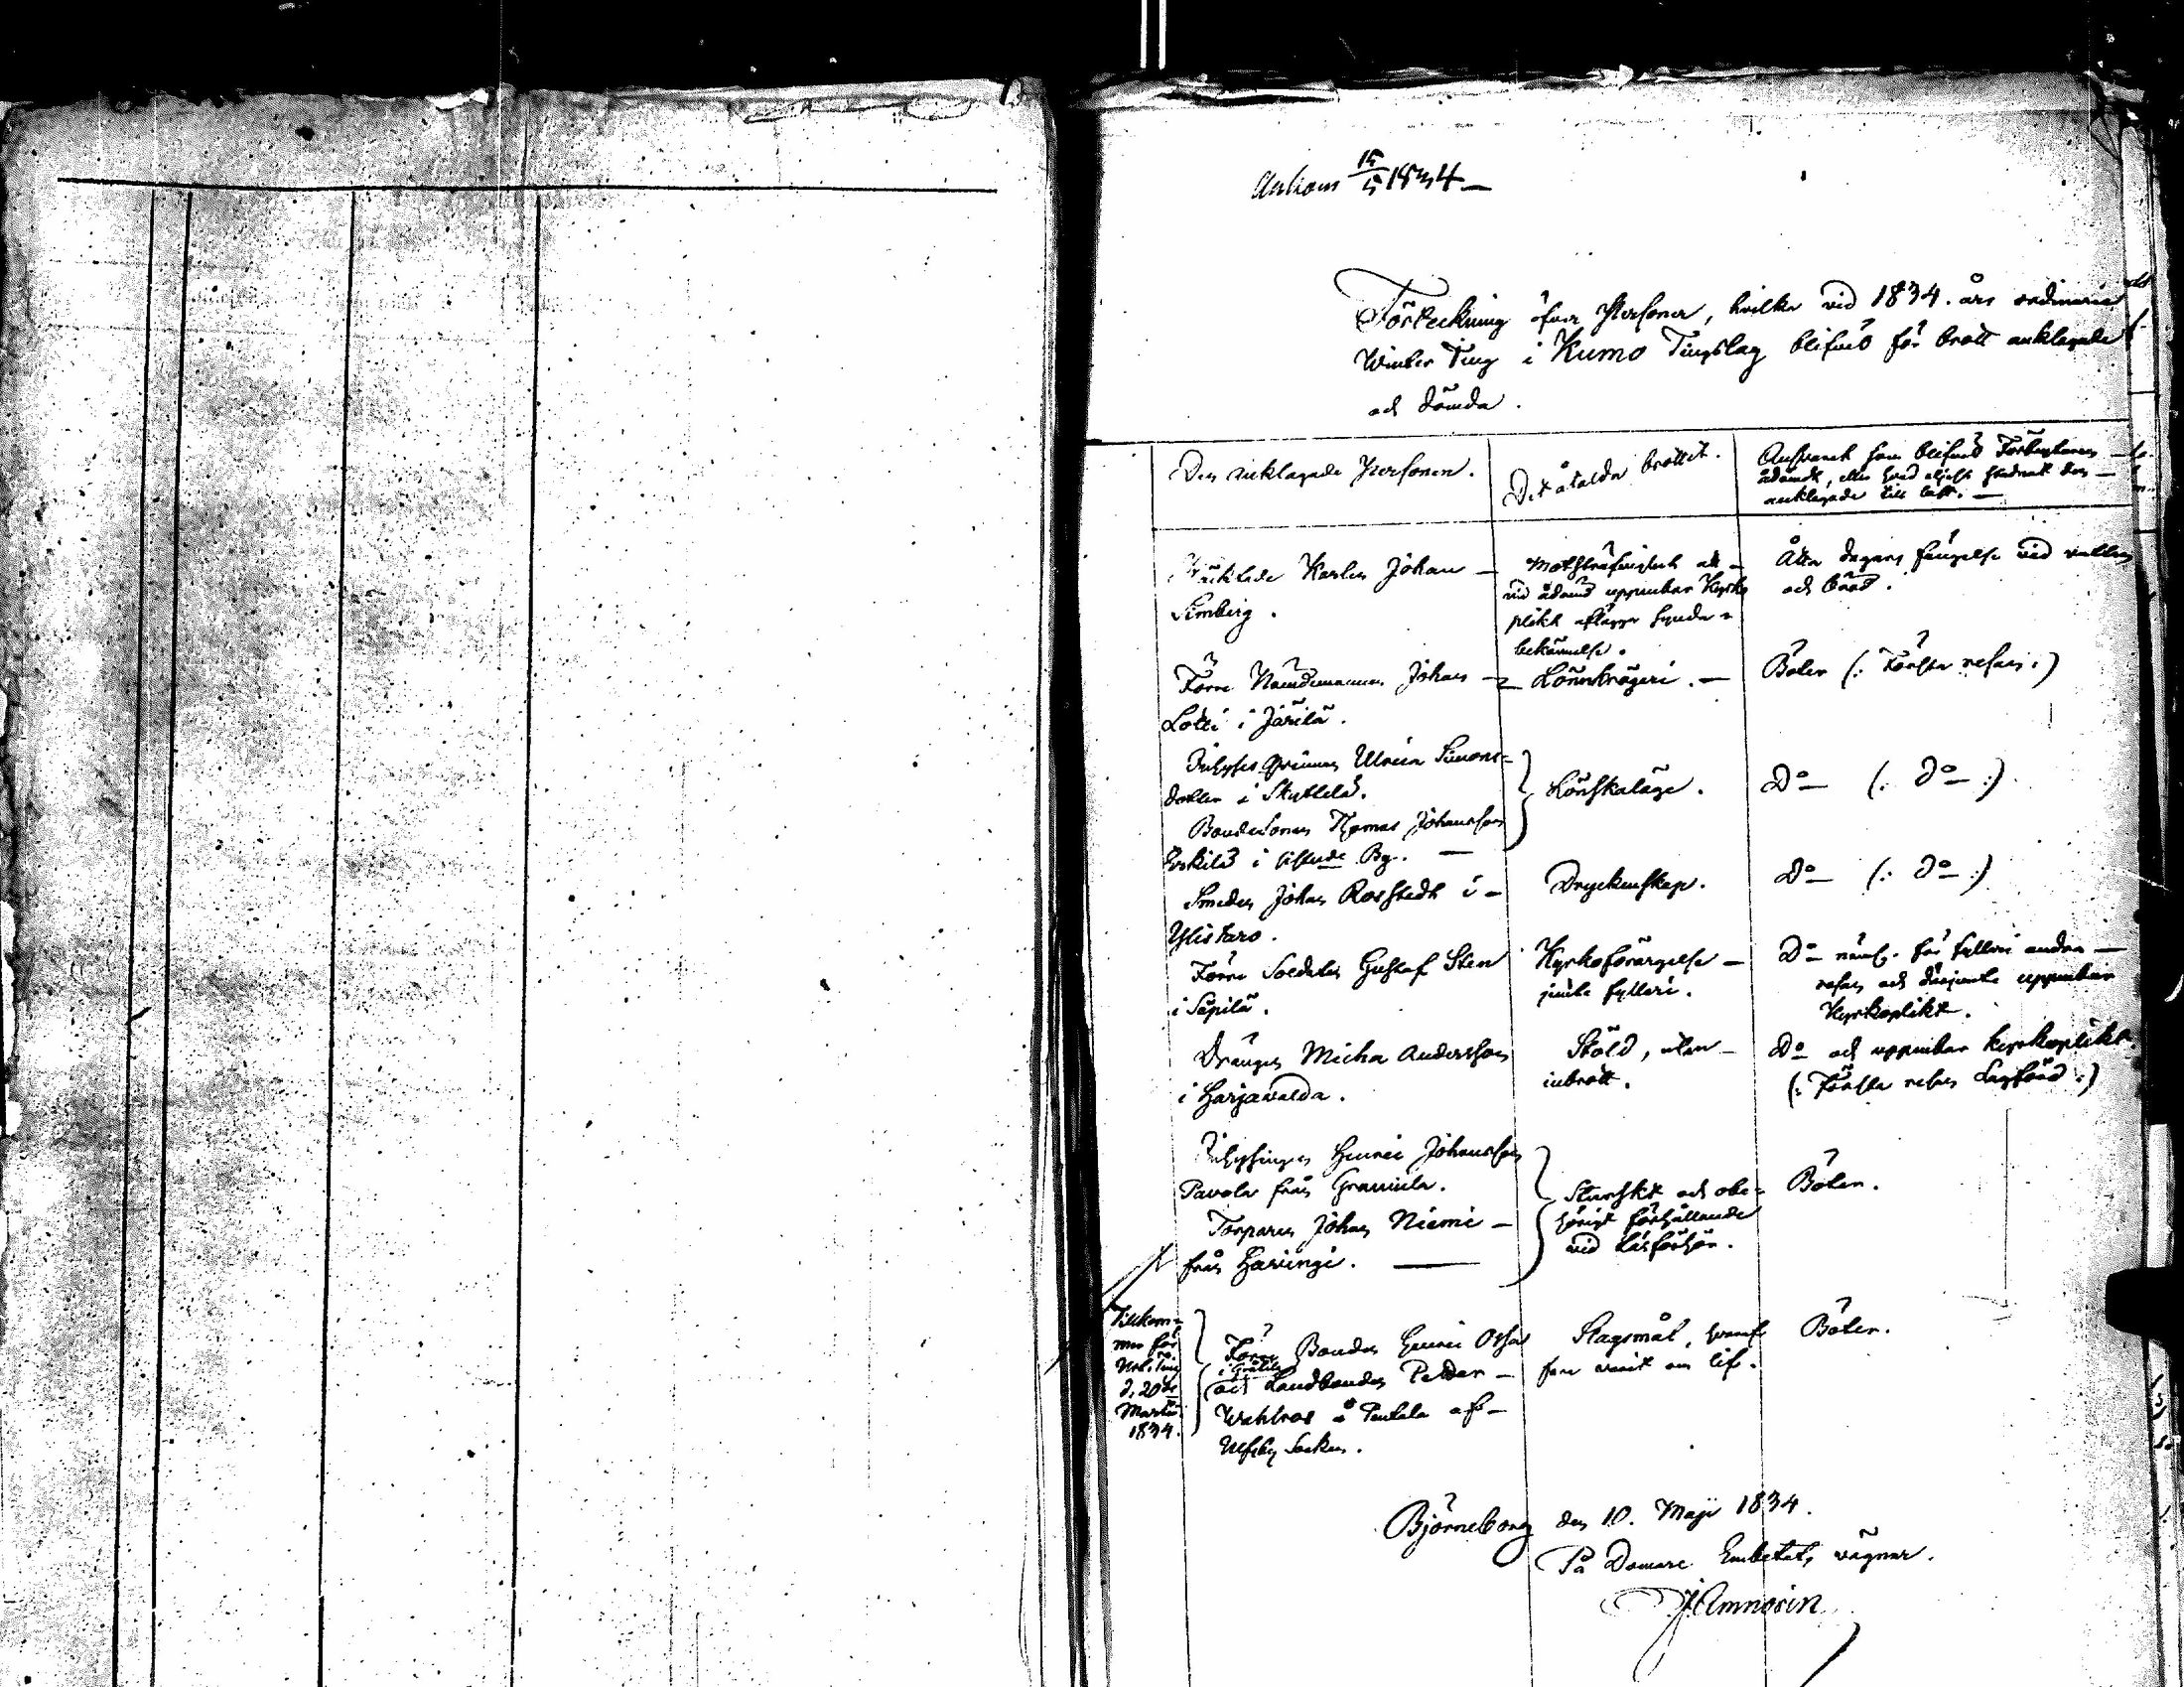 Ankom 15/5 1834
Förteckning öfver Personer, hvilka vid 1834. års ordinarie
Winter Ting i Kumo Tingslag blifvit för brott anklagade
och dömda.
Den anklagade Personen.
Det åtalda brottet.
Answaret som blifvit Förbrytaren
ådömdt, eller hvad eljest stadnat den
anklagade till last.
Karlen Johan
Simberg.
Motsträfvighet att
vid ådömd uppenbar Kyrko
plikt aflägga synda-
bekännelse.
Åtta dagars fängelse vid vatten
och bröd.
Förre Nämndemannen Johan
Lotti i Järilä.
Lönnkrögeri.
Böter (: Första resan :)
Inhyses qvinnan Ulrica Simons-
dotter i Skyttelä.
Bondesonen Thomas Johansson
Eskilä i sistnde By.
Lönskaläge.
Do (: Do :)
Smeden Johan Rosstedt i
Ylistaro.
Dryckenskap.
Do (: Do :)
Förre Soldaten Gustaf Sten
i Säpilä.
Kyrkoförargelse
jemte fylleri.
Do näml. för fylleri andra
resan och derjemte uppenbar
Kyrkoplikt.
Drängen Micha Andersson
i Harjavalda.
Stöld, utan
inbrott.
Do och uppenbar kyrkoplikt
(: Första resan Lagförd :)
Inhysingen Henric Johansson
Pavola från
Torparen Johan Niemi
från Haringi.
Stursket och obe-
hörigt förhållande
vid Läsförhör.
Böter.
Tillkom-
mer för
Urt. Ting
d. 20de
Martii
1834.
Förre Bonden Henric
och Landbonden Petter
Wahlroos i Penttala af
Ulfsby Socken.
Slagsmål, hvaraf
fara varit om lif.
Böter.
Björneborg den 10. Maji 1834.
På Domare Embetets vägnar.